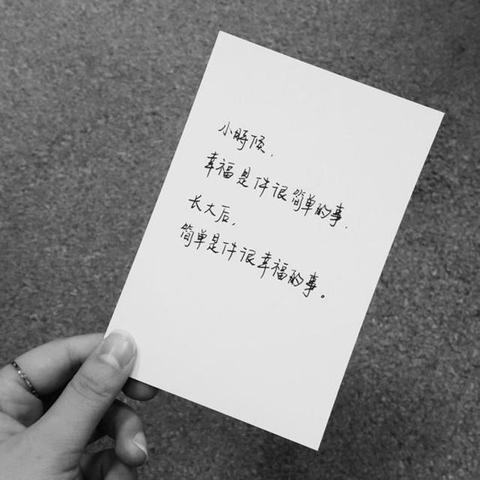 小時候，
幸福是件很简单的事．
长大后，
简单是件很幸福的事。